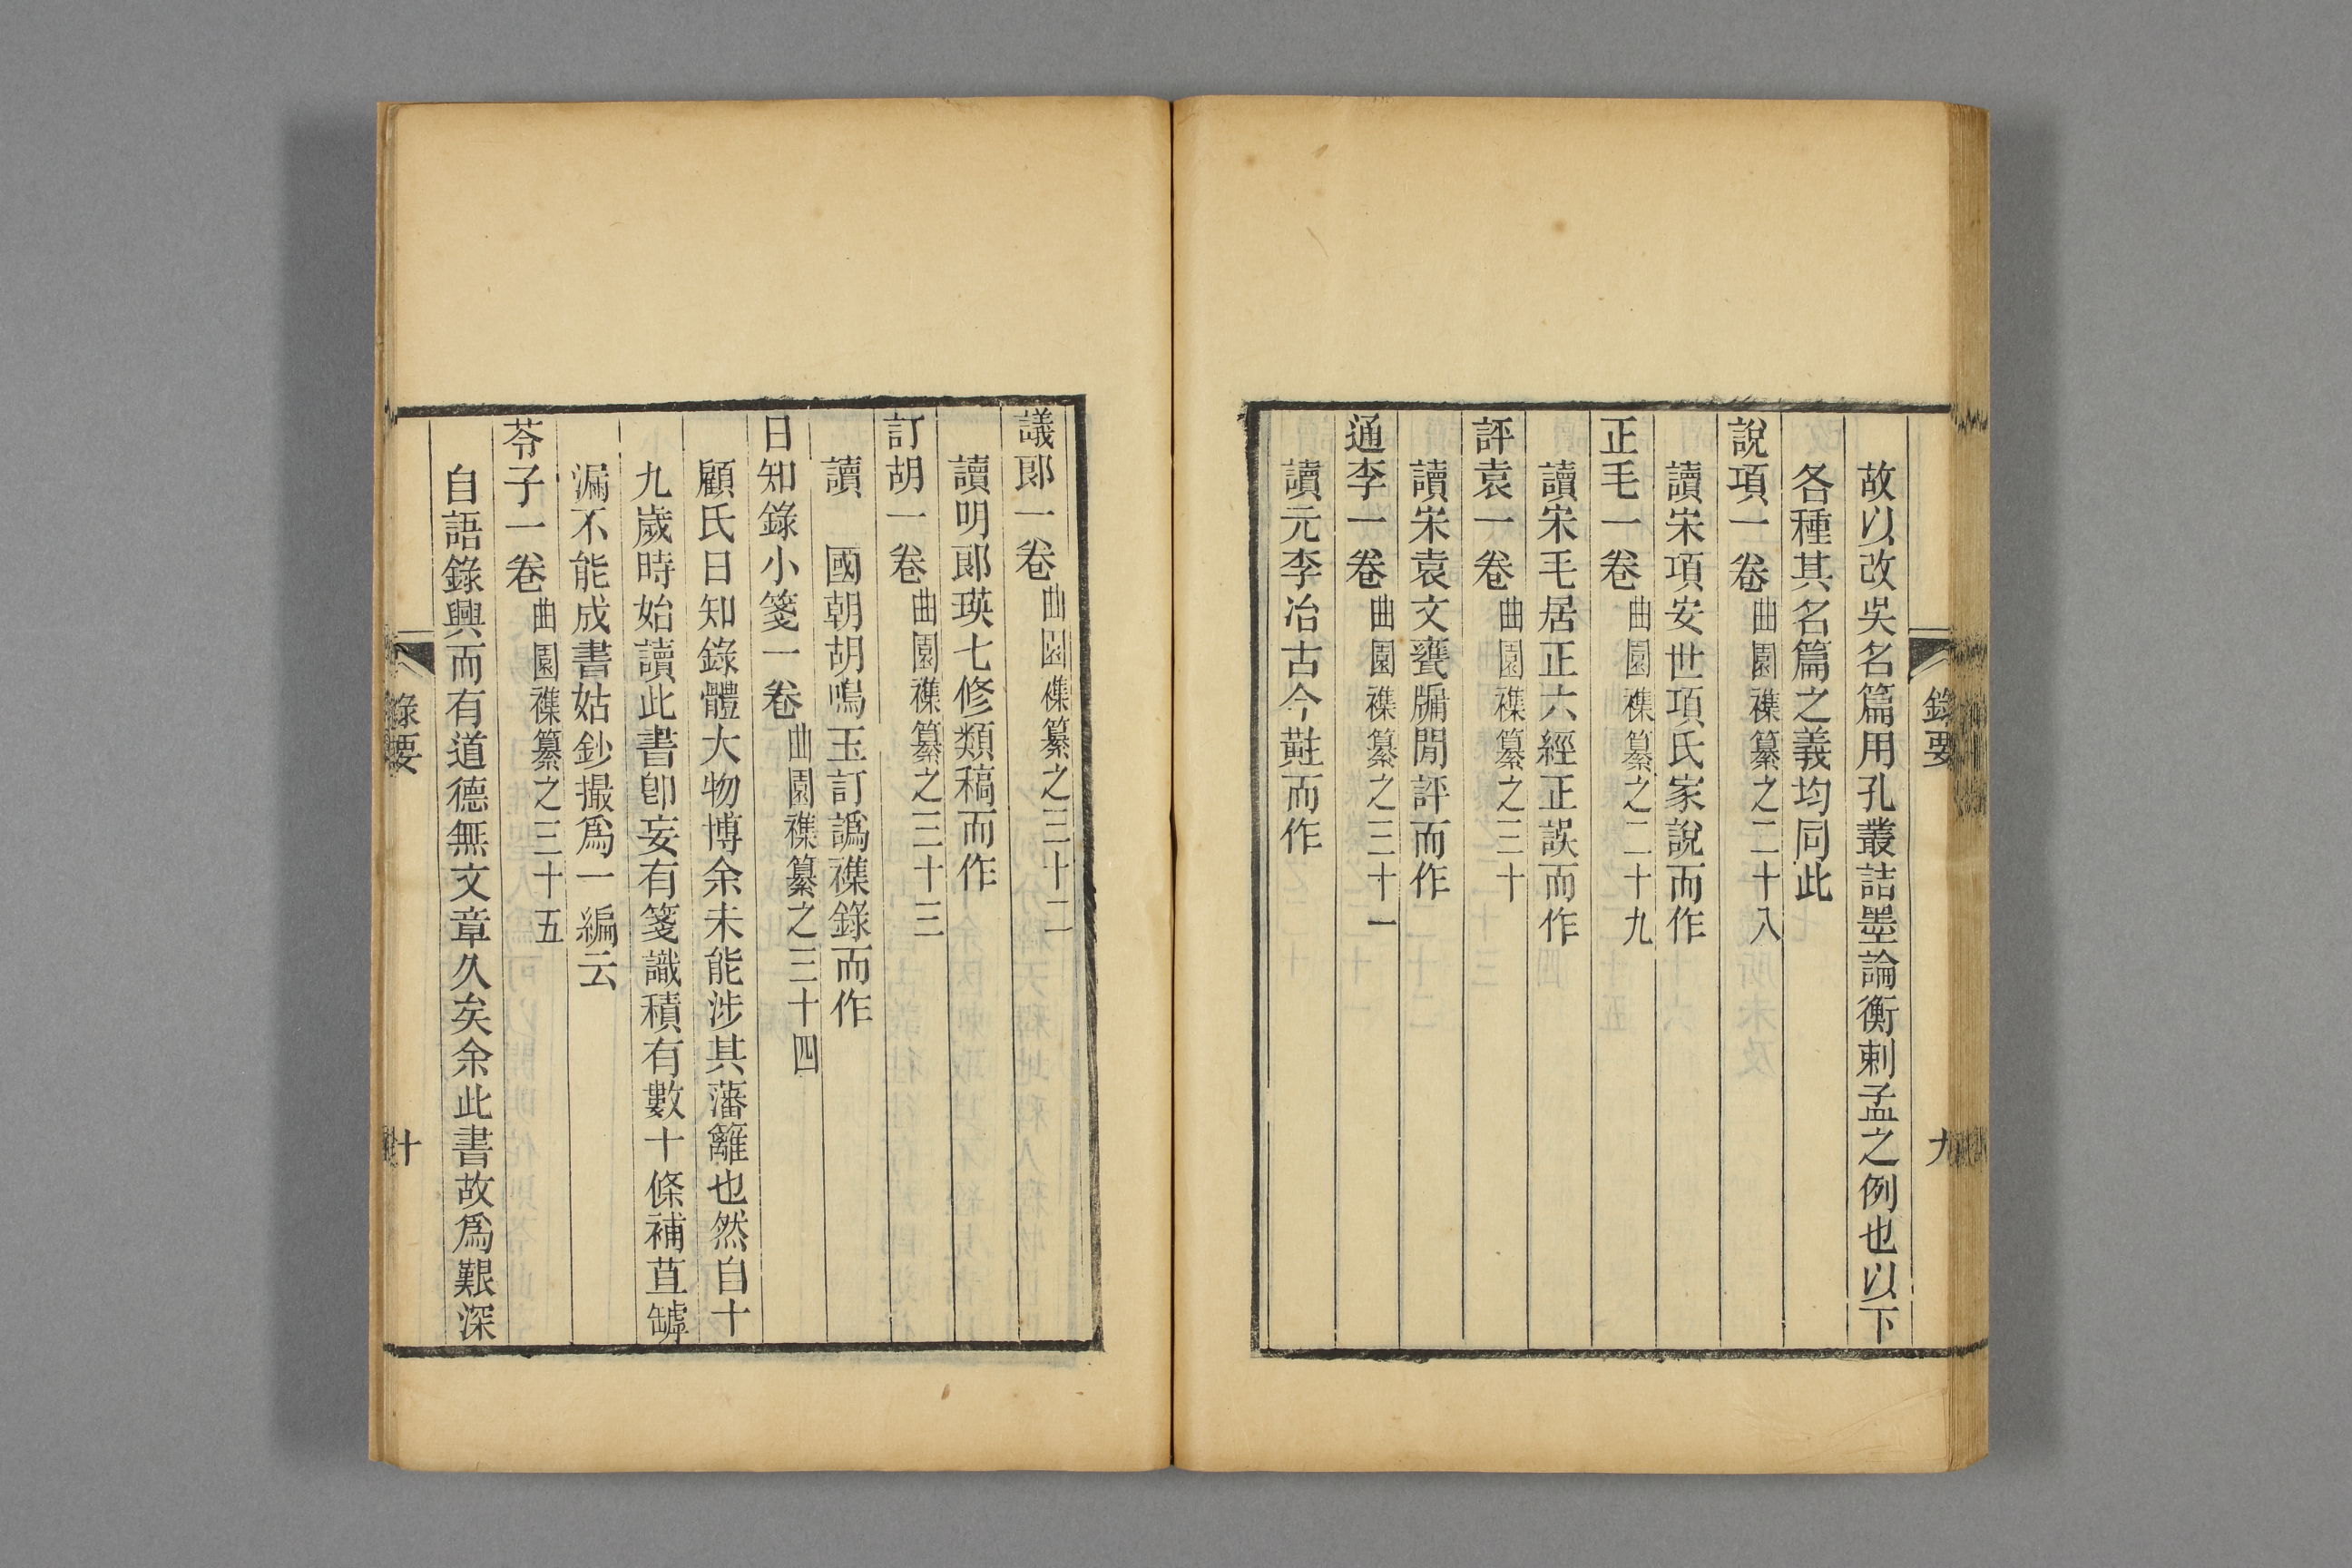 錄要
九
故以改吳名篇用孔叢詰墨論衡刺孟之例也以下
各種其名篇之義均同此
說項一卷曲園襍纂之二十八
讀宋項安世項氏家說而作
正毛一卷曲園襍纂之二十九
讀宋毛居正六經正誤而作
評袁一卷曲園襍纂之三十
讀宋袁文甕牖閒評而作
通李一卷曲園襍纂之三十一
讀元李冶古今黈而作
議郎一卷曲園襍纂之三十二
讀明郎瑛七修類稿而作
訂胡一卷曲園襍纂之三十三
讀　國朝胡鳴玉訂譌襍錄而作
日知錄小箋一卷曲園襍纂之三十四
顧氏日知錄體大物博余未能涉其藩籬也然自十
九歲時始讀此書卽妄有箋識積有數十條補苴罅
漏不能成書姑鈔撮爲一編云
苓子一卷曲園襍纂之三十五
自語錄興而有道德無文章久矣余此書故爲艱深
錄要
十